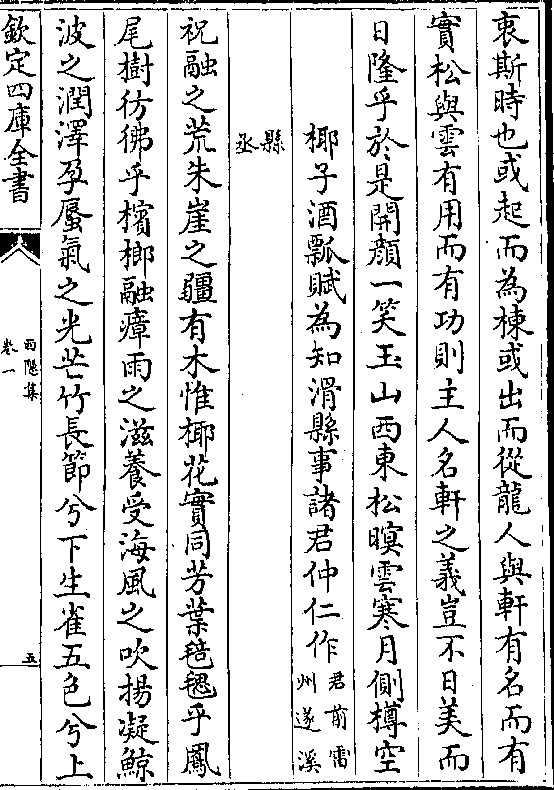 衷斯時也或起而為棟或出而從龍人與軒有名而有
實松與雲有用而有功則主人名軒之義豈不日美而
日隆乎於是開顏一笑玉山西東松暝雲寒月側樽空
椰子酒瓢賦為知滑縣事諸君仲仁作君前雷州遂溪
縣丞
祝融之荒朱崖之疆有木惟椰花實同芳葉毰毸乎鳳
尾樹彷彿乎檳榔融瘴雨之滋養受海風之吹揚凝鯨
波之潤澤孕蜃氣之光芒竹長節兮下生雀五色兮上
欽定四庫全書
西隱集
卷一
五